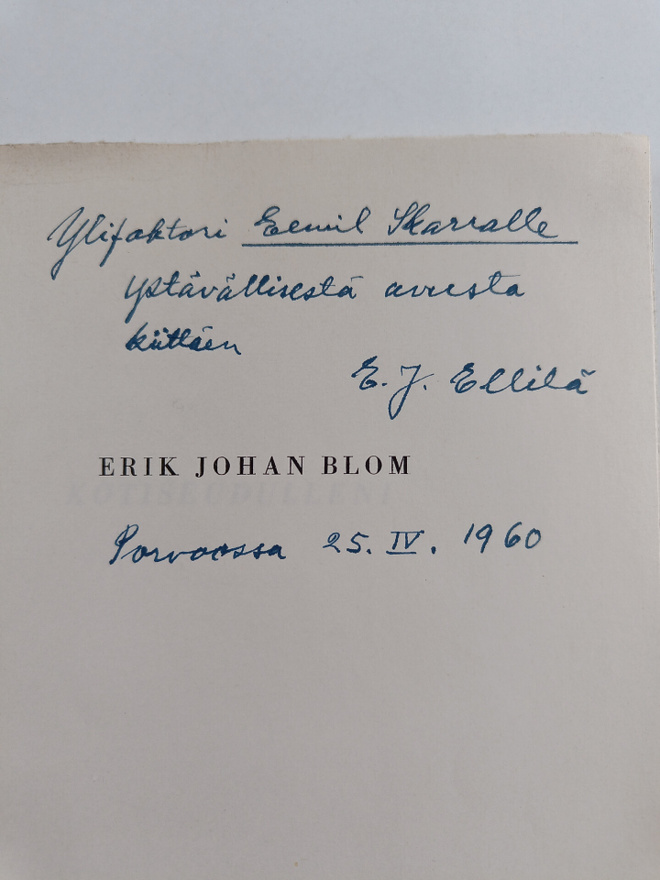 Ylifaktori Eemil Skarralle
ystävällisestä avusta
kiittäen
E. J. Ellilä
ERIK JOHAN BLOM
KOTISEUDULLENI
Porvoossa 25. IV. 1960